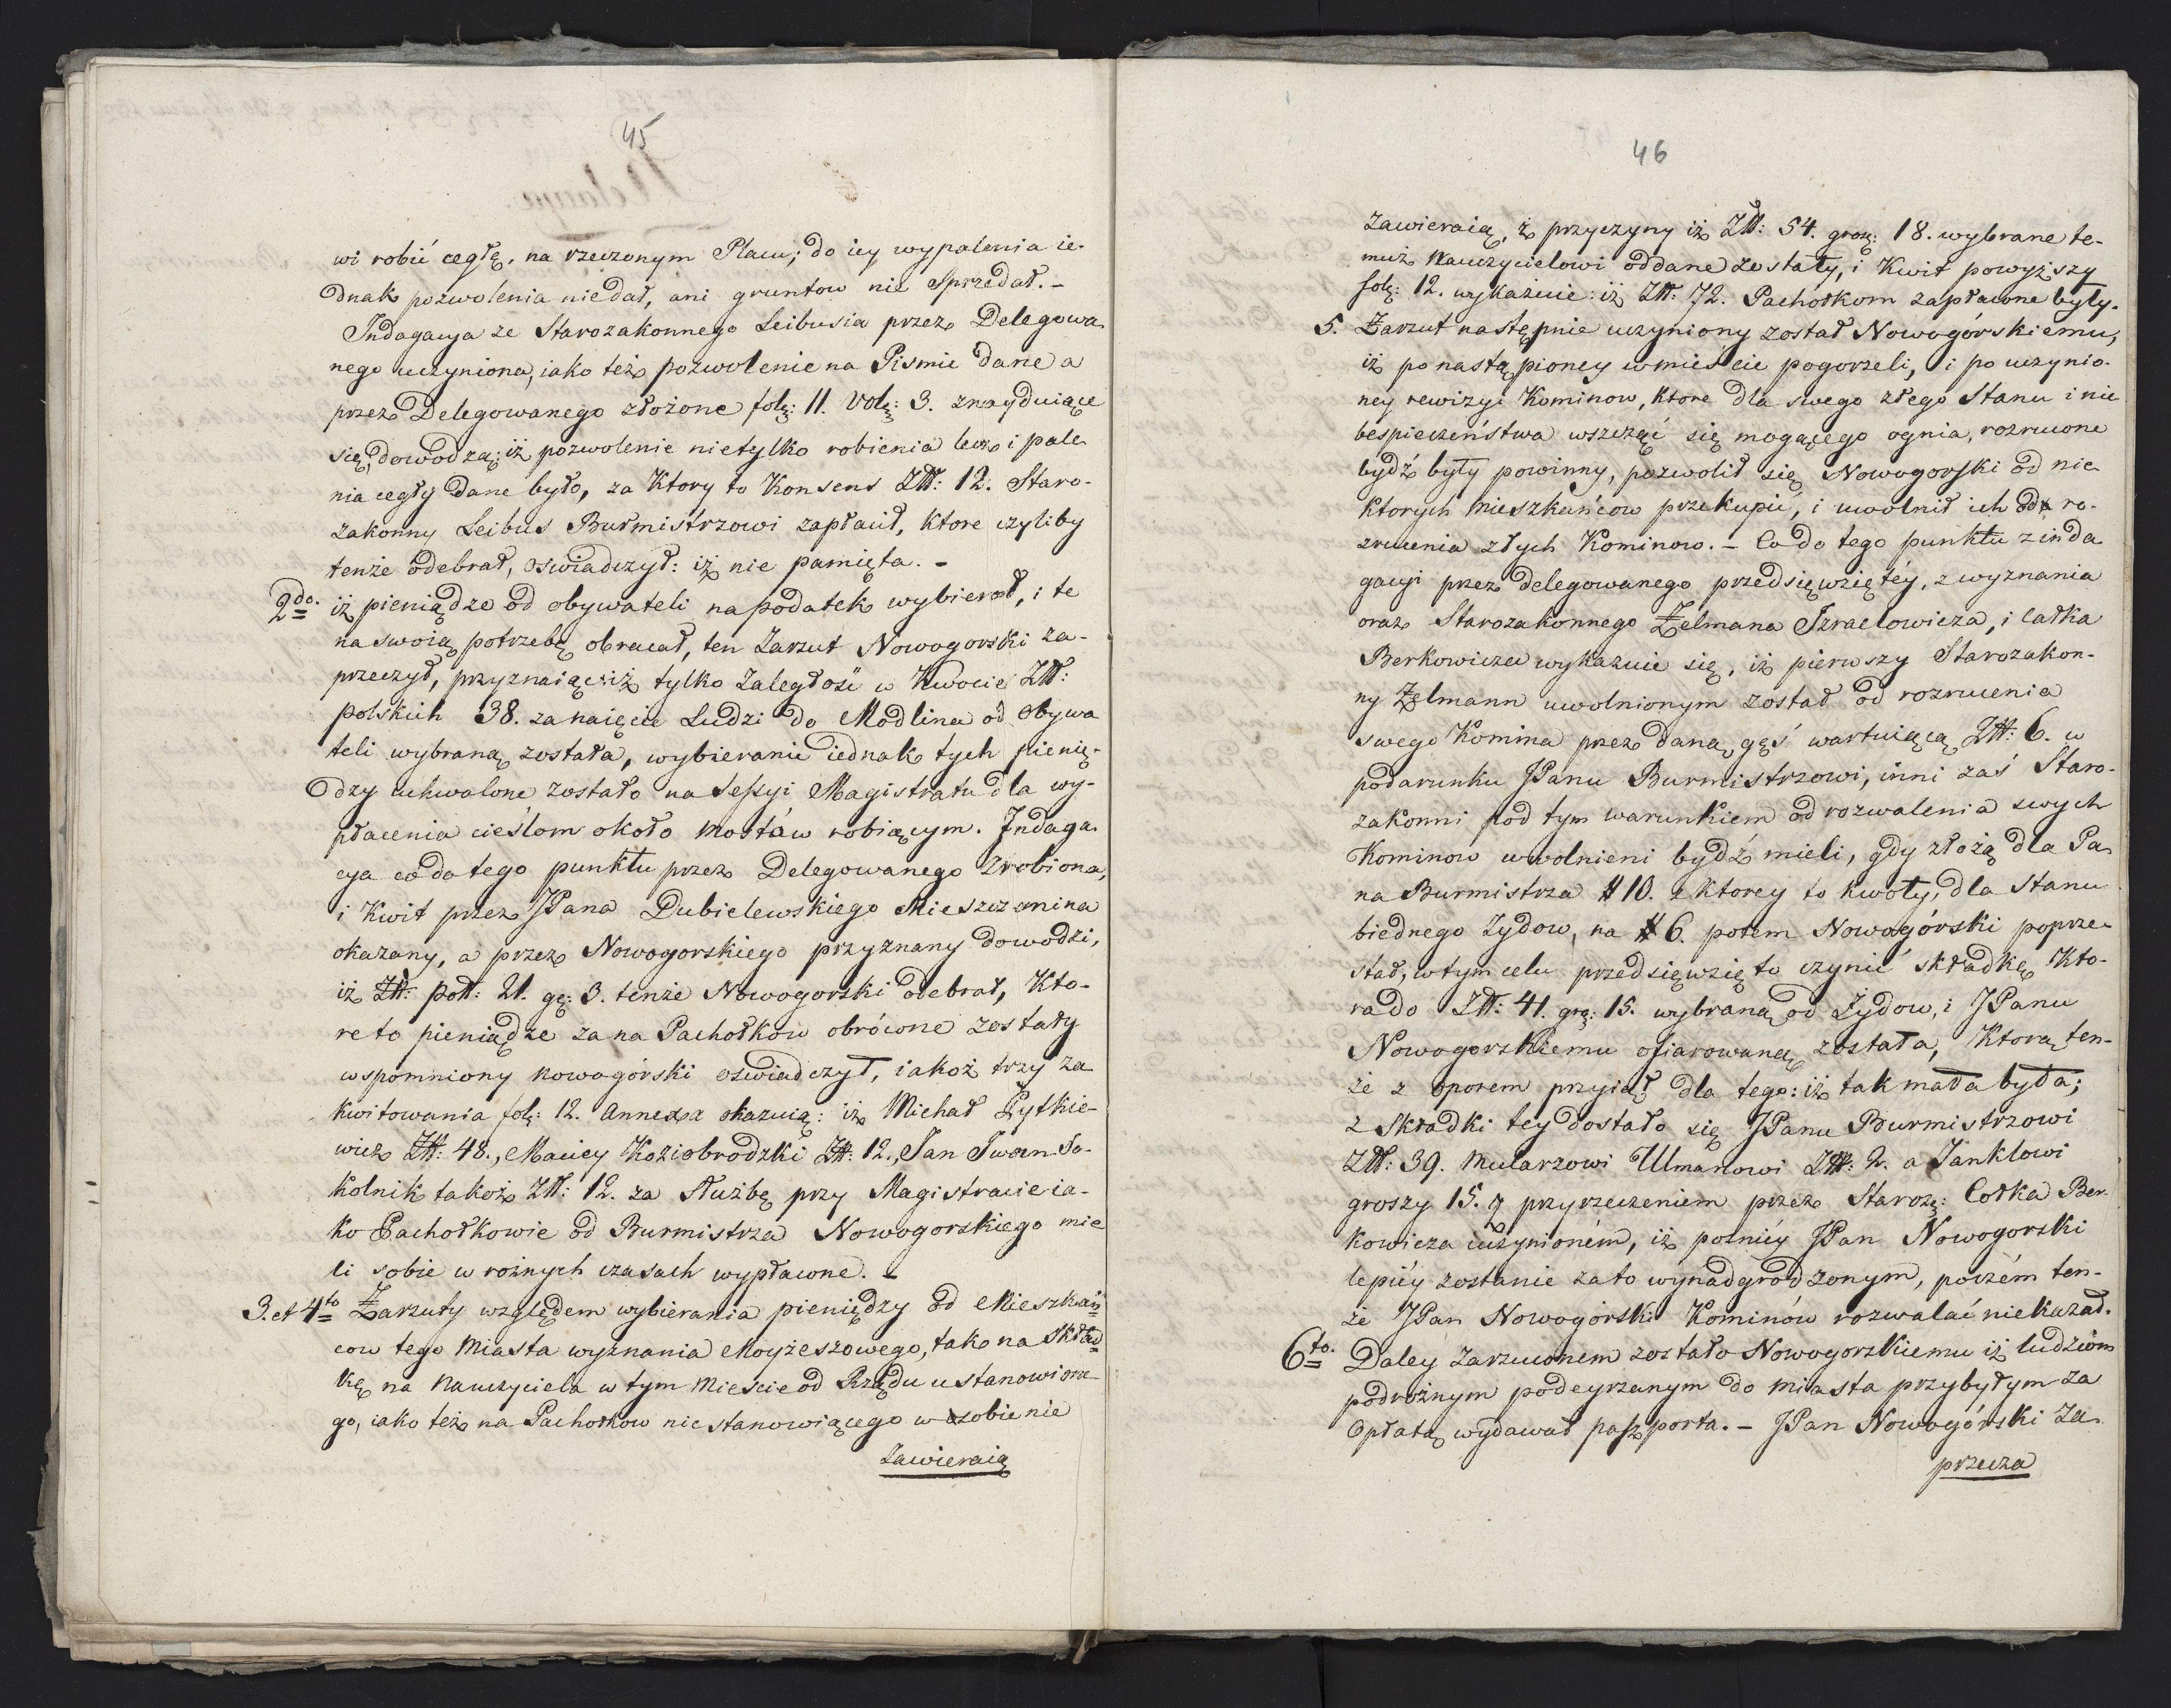 45
wi robić cegłę, na rzeczonym Placu; do iey wypalenia ie-
dnak pozwolenia niedał, ani gruntow nie Sprzedał. -
Indagacya ze Starozakonnego Leibusia przez Delegowa-
nego uczyniona, iako też pozwolenie na Pismie dane a
przez Delegowanego złożone fol: 11. Vol: 3. znayduiące
się, dowodzą: iż pozwolenie nietylko robienia lecz i pale-
nia cegły dane było, za Ktory to Konsens Złł: 12. Staro-
zakonny Leibus Burmistrzowi zapłacił, Ktore czyliby
tenże odebrał, oswiadczył: iż nie pamięta. -
2do. iż pieniądze od obywateli na podatek wybierał, i te
na swoią potrzebę obracał, ten Zarzut Nowogorski za-
przeczył, przyznaiąc: iż tylko Zaległość w Kwocie Złł:
polskich 38. za naięcie Ludzi do Modlina od obywa
teli wybraną została, wybieranie iednak tych pienię-
dzy uchwalone zostało na Sessyi Magistratu dla wy-
płacenia cieślom około mostów robiącym. Indaga-
cya co do tego punktu przez Delegowanego zrobiona,
i Kwit przez JPana Dubielewskiego Mieszczanina
okazany, a przez Nowogorskiego przyznany dowodzi,
iż Złł: poll: 21. gę: 3. tenże Nowogorski odebrał, Kto-
re to pieniądze za na Pachołkow obrócone zostały
wspomniony Nowogórski oświadczył, iakoż trzy za
kwitowania fol: 12. Annexa okazuią: iż Michał Pytkie-
wicz Złł: 48., Maciey Koziobrodzki Złł: 12., Jan Iwan So-
kolnik takoż Złł: 12. za służbę przy Magistracie ia-
ko Pachołkowie od Burmistrza Nowogorskiego mie
li sobie w rożnych czasach wypłacone. -
3. et 4to Zarzuty względem wybierania pieniędzy od Mieszkań
cow tego Miasta wyznania Moyżeszowego, tak na Skład
kę na Nauczyciela w tym Mieście od Rządu ustanowione
go, iako też na Pachołkow nic stanowiącego w sobie nie
zawieraią
46
zawieraią, z przyczyny iż Złł: 54. grosz: 18. wybrane te-
muż Nauczycielowi oddane zostały, i Kwit powyższy
fol: 12. wykazuie: iż Złł: 72. Pachołkom zapłacone były.
5. Zarzut następnie uczyniony został Nowogórskiemu,
iż po nastąpioney w mieście pogorzeli, i po uczynio-
ney rewizyi Kominow, Ktore dla swego złego Stanu i nie
bespieczeństwa wszcząć się mogącego ognia, rozrucone
bydź były powinny, pozwolił się Nowogorski od nie-
ktorych Mieszkańcow przekupić, i uwolnił ich od ro-
zrucenia złych Kominow. - Co do tego punktu z inda
gacyi przez delegowanego przedsięwziętéy, z wyznania
oraz Starozakonnego Zelmana Izraelowicza, i Całka
Berkowicza wykazuie się, iż pierwszy Starozakon-
ny Zelmann uwolnionym został od rozrucenia
swego Komina przez daną gęś wartuiącą Złł: 6. w
podarunku JPanu Burmistrzowi, inni zaś Staro-
zakonni pod tym warunkiem od rozwalenia swych
Kominow uwolnieni bydź mieli, gdy złożą dla Pa-
na Burmistrza # 10. z ktorey to kwoty, dla Stanu
biednego Żydow, na # 6. potem Nowogórski poprze-
stał, w tym celu przedsięwzięto czynić składkę Kto-
ra do Złł: 41. gro: 15. wybraną od Żydow, i JPanu
Nowogorskiemu ofiarowaną została, Ktorą ten-
że z oporem przyiął dla tego: iż tak mała była;
z Składki tey dostało się JPanu Burmistrzowi
Złł: 39. Mularzowi Ulmanowi Złł: 2. a Janklowi
groszy 15. z przyrzeczeniem przez Staroz: Całka Ber-
kowicza uczynioném, iż potniéy JPan Nowogorski
lepiéy zostanie za to wynadgrodzonym, poczém ten-
że JPan Nowogórski Kominów rozwalać niekazał.
6to. Daley zarzuconem zostało Nowogorskiemu iż ludziom
podrożnym podeyrzanym do miasta przybyłym za
opłatą wydawał paszporta. - JPan Nowogórski za-
przecza